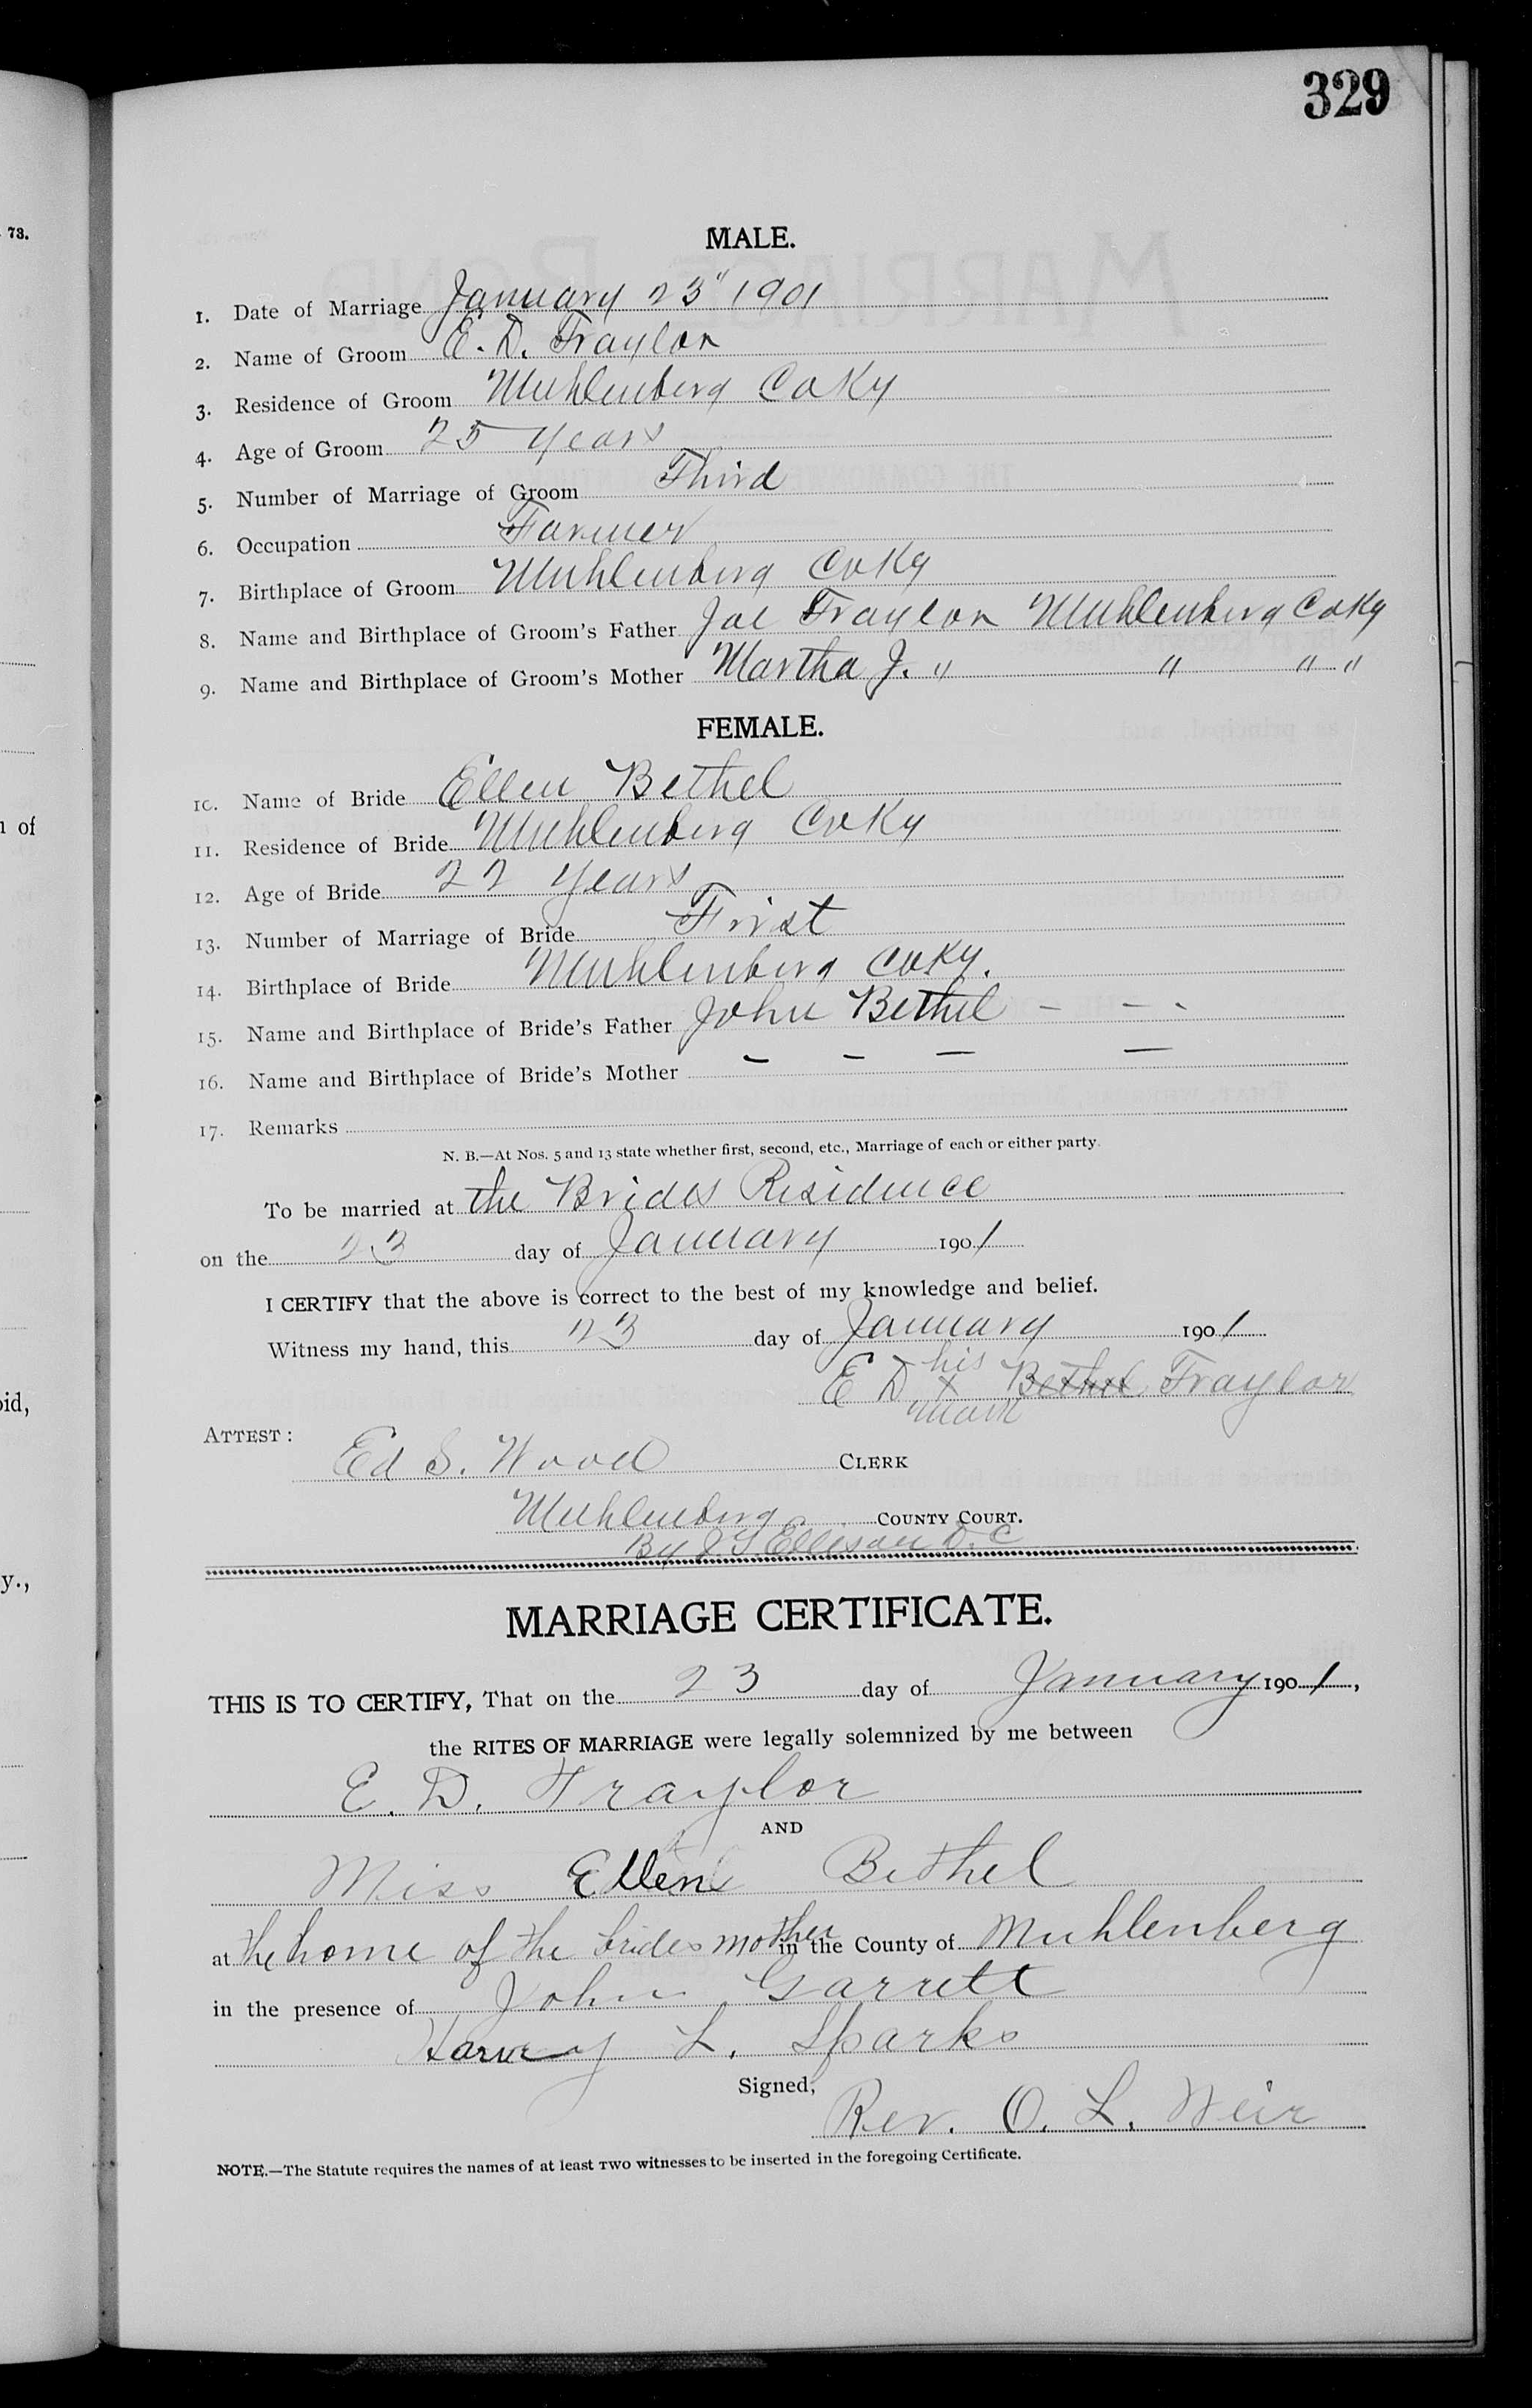 329
73.
MALE.
1. Date of Marriage January 23" 1901
2. Name of Groom E. D. Traylor
3. Residence of Groom Muhlenberg Co Ky
4. Age of Groom 25 Years
5. Number of Marriage of Groom Third
6. Occupation Farmer
7. Birthplace of Groom Muhlenberg Co Ky
8. Name and Birthplace of Groom's Father Joe Traylor Muhlenberg Co Ky
9. Name and Birthplace of Groom's Mother Martha J. " " " "
FEMALE.
10. Name of Bride Ellen Bethel
n of
11. Residence of Bride Muhlenberg Co Ky
12. Age of Bride 22 Years
13. Number of Marriage of Bride First
14. Birthplace of Bride Muhlenberg Co Ky.
15. Name and Birthplace of Bride's Father John Bethel - - -
16. Name and Birthplace of Bride's Mother - - - -
17. Remarks
N. B.—At Nos. 5 and 13 state whether first, second, etc., Marriage of each or either party.
To be married at the Brides Residence
on the 23 day of January 1901
I CERTIFY that the above is correct to the best of my knowledge and belief.
Witness my hand, this 23 day of January 1901
his
E D X Bethel Traylor
mark
ATTEST:
Ed S. Wood CLERK
Muhlenberg COUNTY COURT.
By J. S Ellison D. C
y.,
MARRIAGE CERTIFICATE.
THIS IS TO CERTIFY, That on the 23 day of January 1901,
the RITES OF MARRIAGE were legally solemnized by me between
E. D. Traylor
AND
Miss Ellen Bethel
at the home of the brides mother in the County of Muhlenberg
in the presence of John Garrett
Harvey L. Sparks
Signed,
Rev. O. L. Weir
NOTE.—The Statute requires the names of at least TWO witnesses to be inserted in the foregoing Certificate.